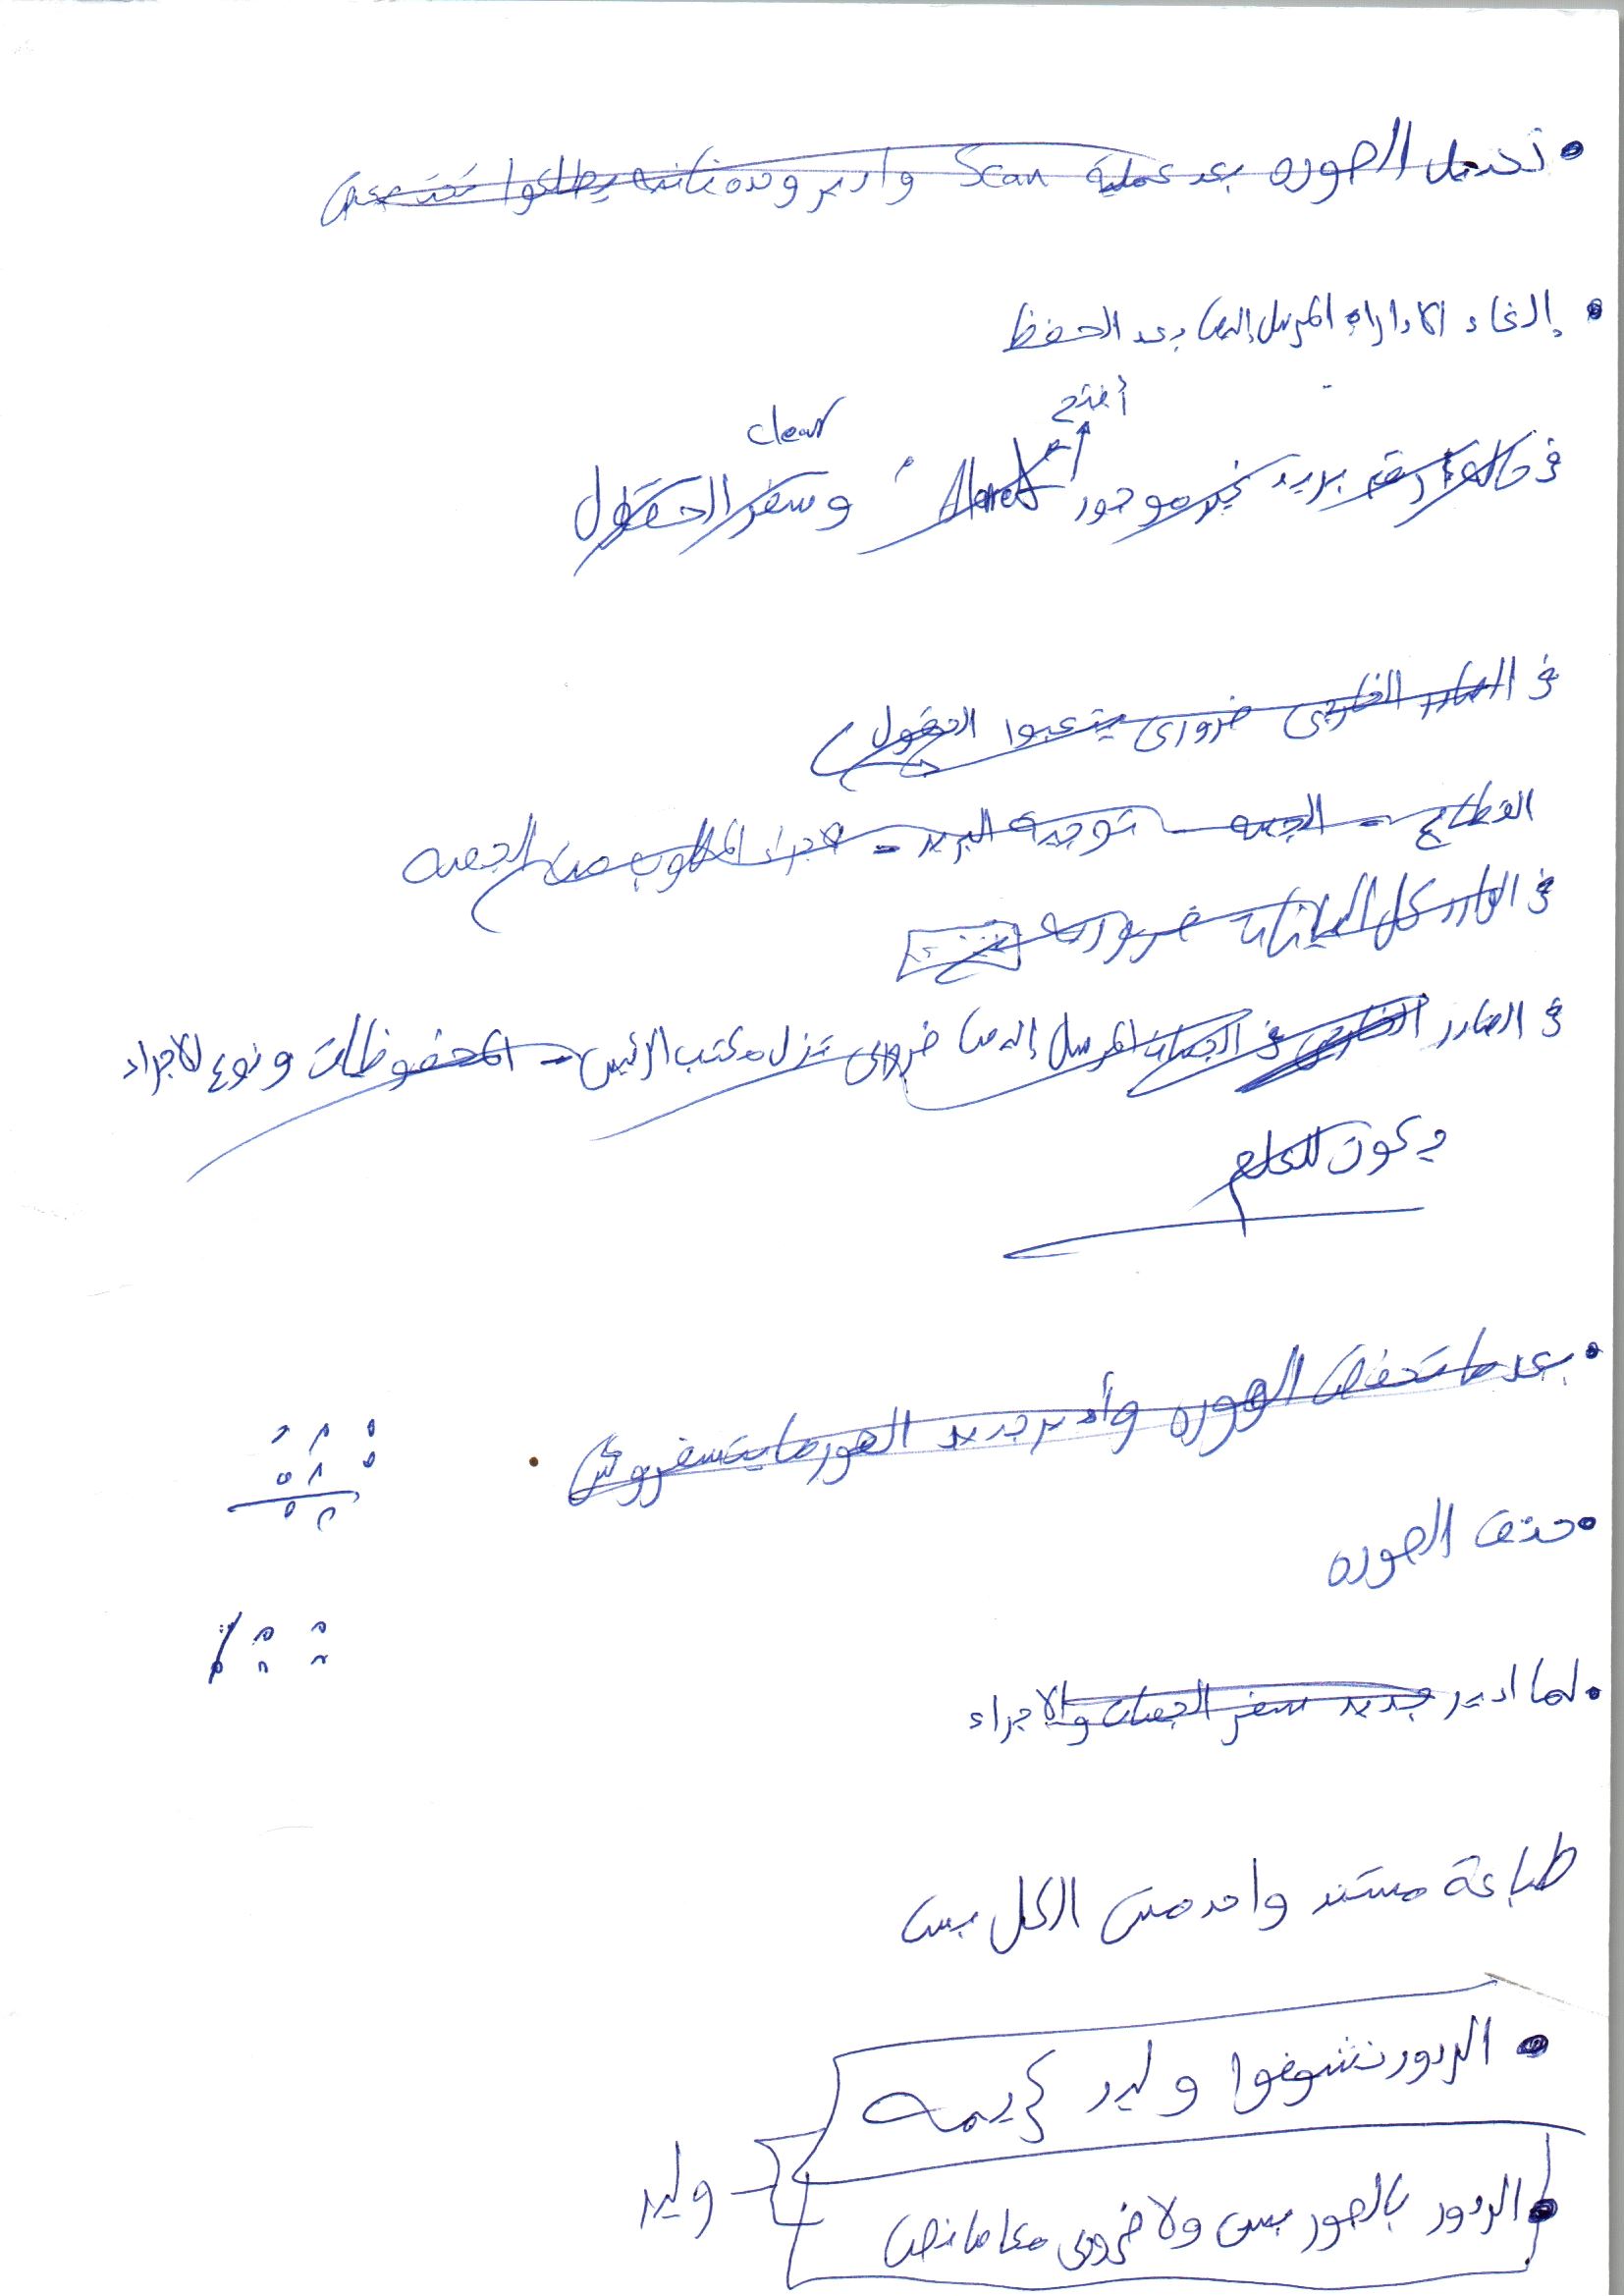 • تحميل الصوره بعد عملية Scan وادير وحده ثانيه يطلعوا تحت بعض
• إلغاء الادارات المرسل إليها بعد الحفظ
أفتح
clear
في حالة رقم بريد غير موجود "Alert" وسفر الحقول
في الصادر الخارجي ضروري يتعبوا الحقول
القطاع - الجهه - توجيه البريد - الاجراء المطلوب من الجهه
في الوارد كل البيانات ضروريه
في الصادر الخارجي في الجهات المرسل إليها ضروري تنزل مكتب الرئيس - المحفوظات ونوع الاجراء
يكون للعلم
• بعد ما تحفظ الصوره وأدير جديد الصور ما يتسفروش
• حذف الصوره
• لما ادير جديد سفر الجهات والاجراء
طباعة مستند واحد مش الكل بس
• الردود نشوفوا وليد كريمه
وليد
• الردود بالصور بس ولا ضروري معاها نص